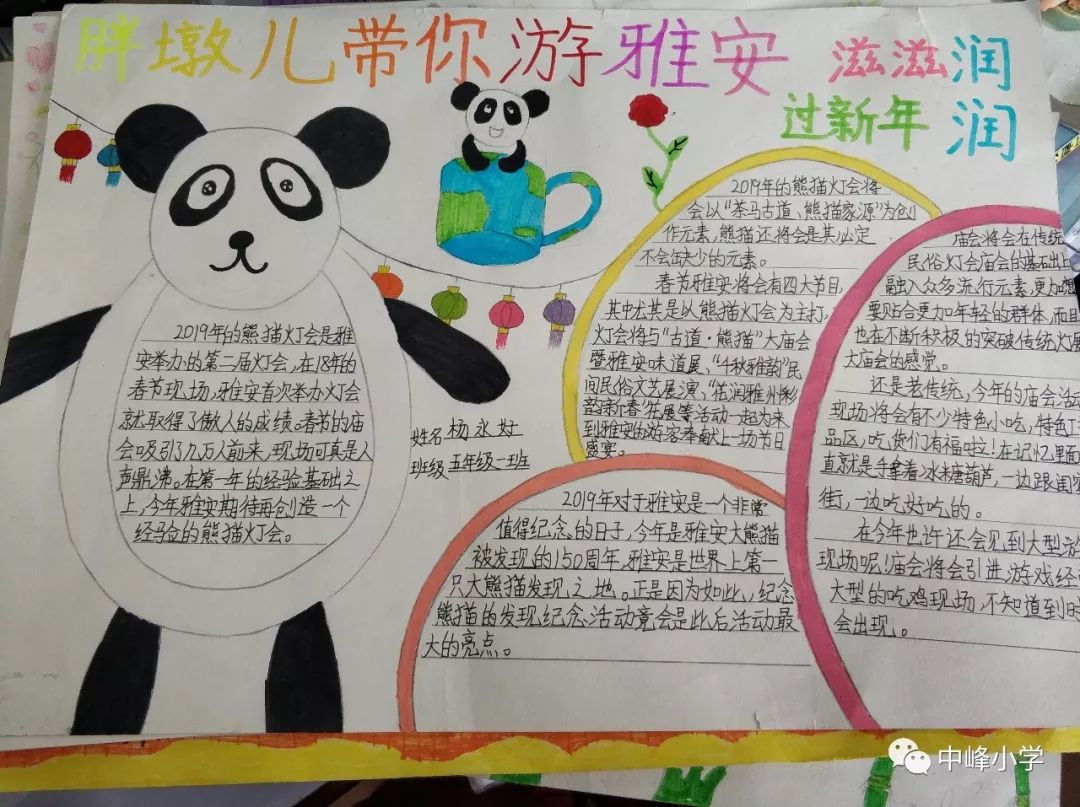 胖墩儿带你游雅安
滋滋润润
过新年
2019年的熊猫灯会是雅
安举办的第二届灯会,在18年的
春节现场,雅安首次举办灯会
就取得了傲人的成绩。春节的庙
会吸引了几万人前来,现场可真是人
声鼎沸。在第一年的经验基础之
上,今年雅安期待再创造一个
经验的熊猫灯会。
姓名 杨永好
班级 五年级一班
2019年的熊猫灯会将
会以“茶马古道、熊猫家源”为创
作元素,熊猫还将会是其必定
不会缺少的元素。
春节雅安将会有四大节目,
其中尤其是以熊猫灯会为主打,
灯会将与“古道·熊猫”大庙会
暨雅安味道展、“千秋雅韵”民
间民俗文艺展演、“花润雅州彩
韵新春”花展等活动一起为来
到雅安的游客奉献上一场节日
盛宴。
2019年对于雅安是一个非常
值得纪念的日子,今年是雅安大熊猫
被发现的150周年,雅安是世界上第一
只大熊猫发现之地。正是因为如此,纪念
熊猫的发现纪念活动竟会是此后活动最
大的亮点。
庙会将会在传统
民俗灯会庙会的基础上
融入众多流行元素,更加
要贴合更加年轻的群体,而且
也在不断积极的突破传统灯展
大庙会的感觉。
还是老传统,今年的庙会活
现场将会有不少特色小吃,特色工
品区,吃货们有福啦!在记忆里面
直就是手拿着冰糖葫芦,一边跟闺
街,一边吃好吃的。
在今年也许还会见到大型游
现场呢!庙会将会引进游戏经
大型的吃鸡现场,不知道到时
会出现。
中峰小学